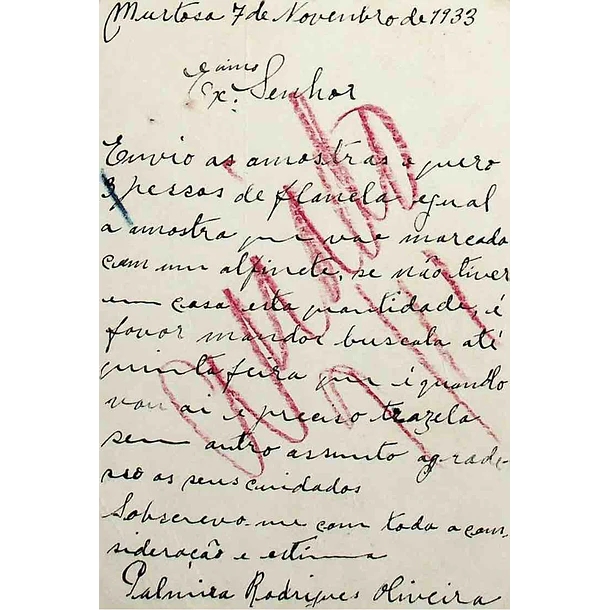 Murtosa 7 de Novenbro de 1933
Exmo
Ex. Senhor
Envio as amostras e quero
3 pessas de flanela egual
a amostra que vae marcada
com um alfinete, se não tiver
em casa esta quantidade, é
favor mandar buscala até
quinta feira que é quando
vou ai e preciso trazela
sem outro assunto agrade-
sso os seus cuidados
Sobscrevo-me com toda a con
sideração e estima
Palmira Rodrigues Oliveira